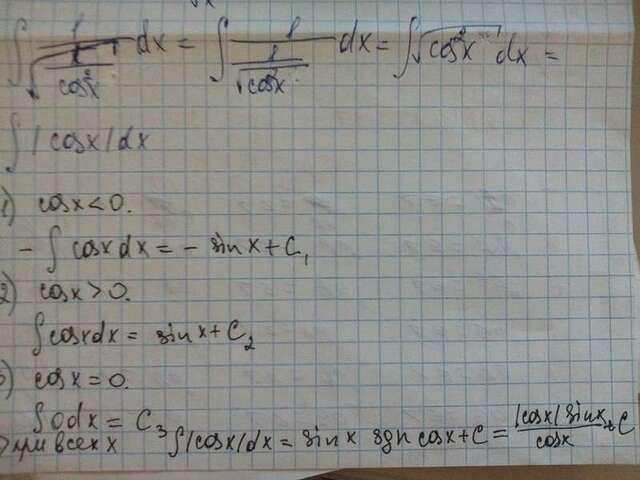 ∫ 1/√(1/cos²x) dx = ∫ 1/(1/√(cos²x)) dx = ∫ √(cos²x) dx =
∫ |cosx| dx
1) cosx < 0.
- ∫ cosx dx = - sin x + C₁
2) cosx > 0.
∫ cosx dx = sin x + C₂
3) cosx = 0.
∫ 0 dx = C₃
⇒ при всех x ∫ |cosx| dx = sin x sgn cosx + C = |cosx| sin x / cosx + C